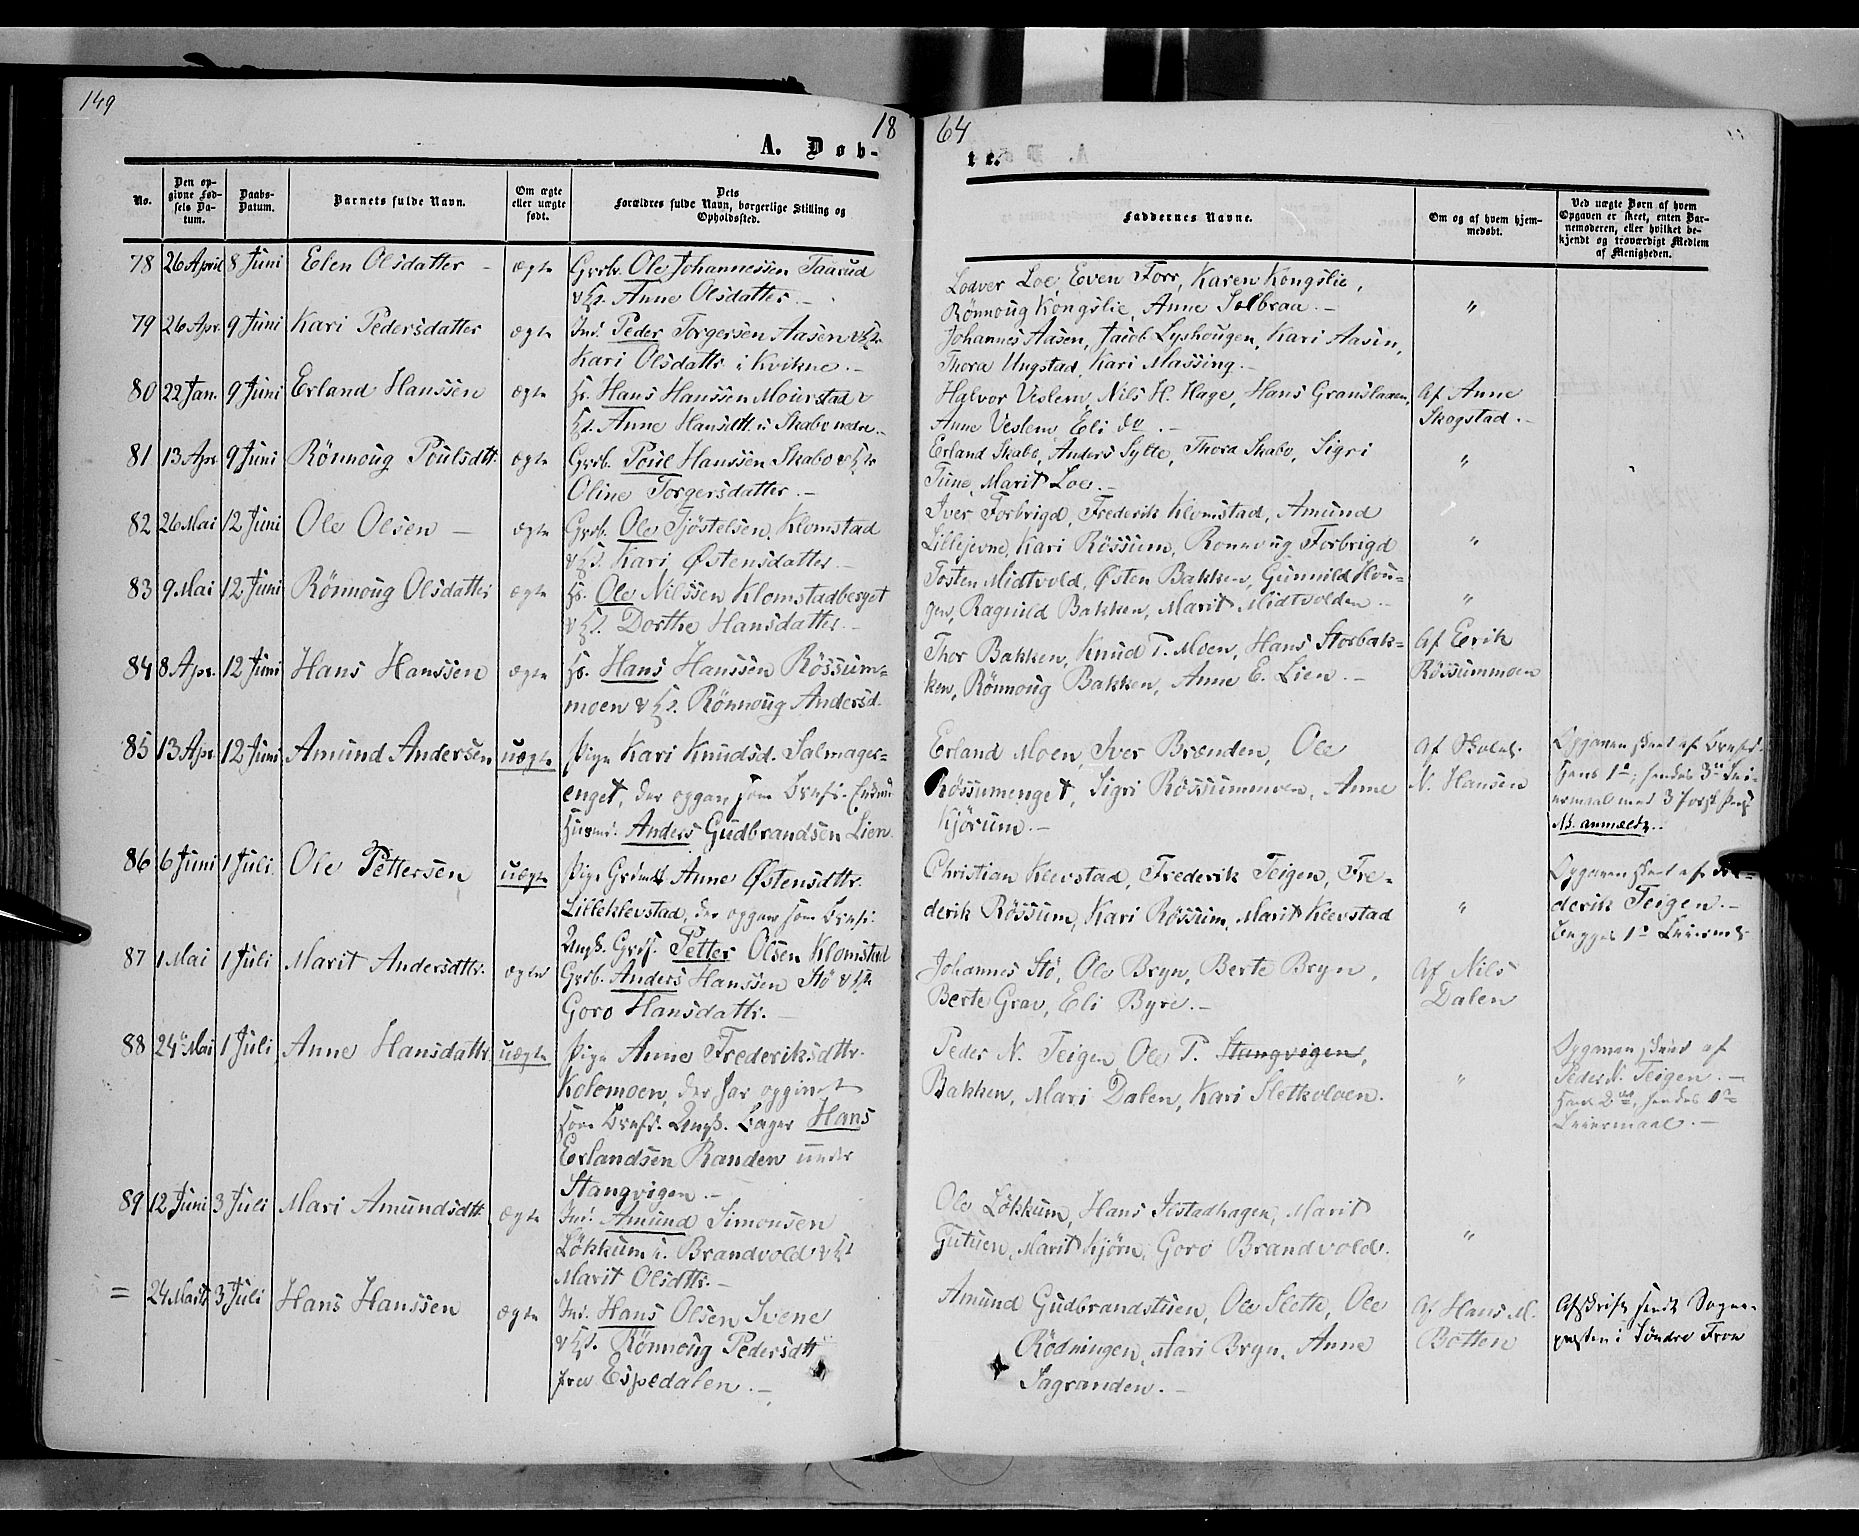 149
18
64
A. Døb-
te.
No.
Den op-
givne Fød-
sels Da-
tum.
Daabs-
Datum.
Barnets fulde Navn.
Om ægte
eller uægte
født.
Dets
Forældres fulde Navn, borgerlige Stilling og
Opholdssted.
Faddernes Navne.
Om og af hvem hjem-
medøbt.
Ved uægte Børn af hvem
Opgaven er skeet, enten Bar-
nemoderen, eller hvilket be-
kjendt og troværdigt Medlem
af Menigheden.
78 26 April 8 Juni Eelen Olsdatter - ægte Grdb. Ole Johannessen Taarud
Anne Olsdatter. -
Lodver Loe, Even Forr, Karen Kongslie,
Rønnoug Kongslie, Anne Solbraa. - "
79 26 Apr. 9 Juni Kari Pedersdatter ægte Ind. Peder Torgersen Aasen
Kari Olsdattr i Kvikne. -
Johannes Aasen, Jacob Lyshougen, Kari Aasen,
Thora Ungstad, Kari Massing. -
80 22 Jan. 9 Juni Erland Hanssen ægte Hs. Hans Hanssen Mourstad
Anne Hansdtt. u. Skabo nedre. -
Halvor Veslem, Nils H. Hage, Hans Granslaaen,
Anne Veslem, Eli do. -
Af Anne
Skogstad. -
81 13 Apr 9 Juni Rønnoug Poulsdtt. ægte Grdb. Poul Hanssen Skabo
Oline Torgersdatter. -
Erland Skabo, Anders Sylte, Thora Skabo, Sigri
Tune, Marit Loe. - "
82 26 Mai 12 Juni Ole Olsen - ægte Grdb. Ole Tjøstelsen Klomstad
Kari Østensdatter. -
Iver Forbrigd, Frederik Klomstad, Amund
Lillejevne, Kari Røssum, Rønnoug Forbrigd "
83 9 Mai 12 Juni Rønnoug Olsdatter ægte Hs. Ole Nilssen Klomstadberget
Dorthe Hansdatter. -
Tosten Midtvold, Østen Bakken, Gunnild Hou-
gen, Ragnild Bakken, Marit Midtvolden. - "
84 8 Apr. 12 Juni Hans Hanssen ægte Hs. Hans Hanssen Røssum-
moen Rønnoug Andersd.
Thor Bakken, Knud T. Moen, Hans Storbak-
ken, Rønnoug Bakken, Anne E. Lien. -
Af Eerik
Røssummoen
85 13 Apr 12 Juni Amund Andersen uægte Pige Kari Knudsd. Salmager-
enget, der opgav som Barnef.
Husmd. Anders Gudbrandsen Lien.
Erland Moen, Iver Brænden, Ole
Røssumenget, Sigri Røssummoen, Anne
Kjørum. -
Af Skolel.
N. Hansen
Opgaven skeet af
hendes 3die
med 3
NB. anmeldt.
86 6 Juni 1 Juli Ole Pettersen uægte Pige Anne Østensdttr.
Lilleklevstad, der opgav som Barnef.
Ungk. Petter Olsen Klomstad
Christian Klevstad, Frederik Teigen, Fre-
derik Røssum, Kari Røssum, Marit Klevstad "
Opgaven skeet af Fre-
derik Teigen. -
Begges 1ste Leierm.
87 1 Mai 1 Juli Marit Andersdttr. ægte Grdb. Anders Hanssen Stø
Goro Hansdattr. -
Johannes Stø, Ole Bryn, Berte Bryn,
Berte Grav, Eli Byre. -
Af Nils
Dalen
88 24de Mai 1 Juli Anne Hansdattr. uægte Pige Anne Frederiksdttr.
Kolomoen, der har opgivet
som Barnef. Ungk. Hans
Erlandsen Randen under
Stangvigen. -
Peder N. Teigen, Ole P. Stangvigen,
Bakken, Mari Dalen, Kari Sletholoen. "
Opgaven skeet af
Peder N. Teigen. -
Hans 2det, hendes 1ste
Leiermaal. -
89 12 Juni 3 Juli Mari Amundsdtt. ægte Ind. Amund Simonsen
Løkkum u. Brandvold
Marit Olsdttr. -
Ole Løkkum, Hans Istadhagen, Marit
Gutuen, Marit Kjørn, Goro Brandvold. "
= 24 Marts 3 Juli Hans Hanssen ægte Ind. Hans Olsen Svene
Rønnoug Pedersdtt
fra Espedalen. -
Amund Gudbrandstuen, Ole Slette, Ole
Rødningen, Mari Bryn, Anne
Sagranden. -
Af Hans M.
Botten
Afskrift sendt Sogne-
præsten i Søndre Fron